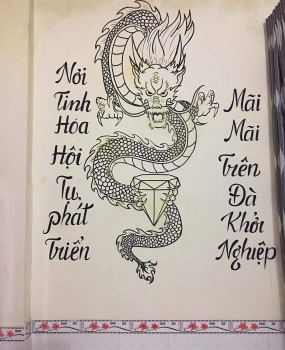 Nơi
Tinh
Hóa
Hội
Tụ,
phát
Triển
Mãi
Mãi
Trên
Đà
Khởi
Nghiệp